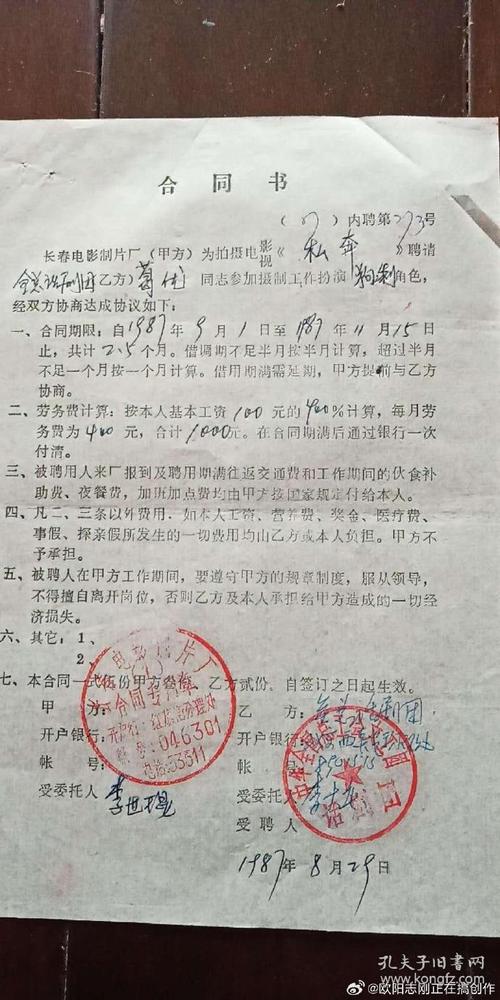 合同书
(87)内聘第273号
长春电影制片厂(甲方)为拍摄电影视《私奔》聘请
全总话剧团乙方)葛优同志参加摄制工作扮演 角色,
经双方协商达成协议如下:
一、合同期限:自1987年9月1日至1987年11月15日
止,共计2.5个月。借调期不足半月按半月计算,超过半月
不足一个月按一个月计算。借用期满需延期,甲方提前与乙方
协商。
二、劳务费计算:按本人基本工资100元的400%计算,每月劳
务费为400元,合计1000元。在合同期满后通过银行一次
付清。
三、被聘用人来厂报到及聘用期满往返交通费和工作期间的伙食补
助费、夜餐费,加班加点费均由甲方按国家规定付给本人。
四、凡二、三条以外费用.如本人工资、营养费、奖金、医疗费、
事假、探亲假所发生的一切费用均由乙方或本人负担。甲方不
予承担。
五、被聘人在甲方工作期间,要遵守甲方的规章制度,服从领导,
不得擅自离开岗位,否则乙方及本人承担给甲方造成的一切经
济损失。
六、其它:1、
2、
七、本合同一式伍份甲方叁份,乙方贰份。自签订之日起生效。
甲方:
乙方:全总话剧团
开户银行:
开户银行:
帐号:
帐号:
受委托人
受委托人
受聘人
电影制片厂
合同专用章
开户行:红旗街办理处
帐号:046301
电话:53311
话剧团
1987年8月29日
孔夫子旧书网
www.kongfz.com
@欧阳志刚正在搞创作